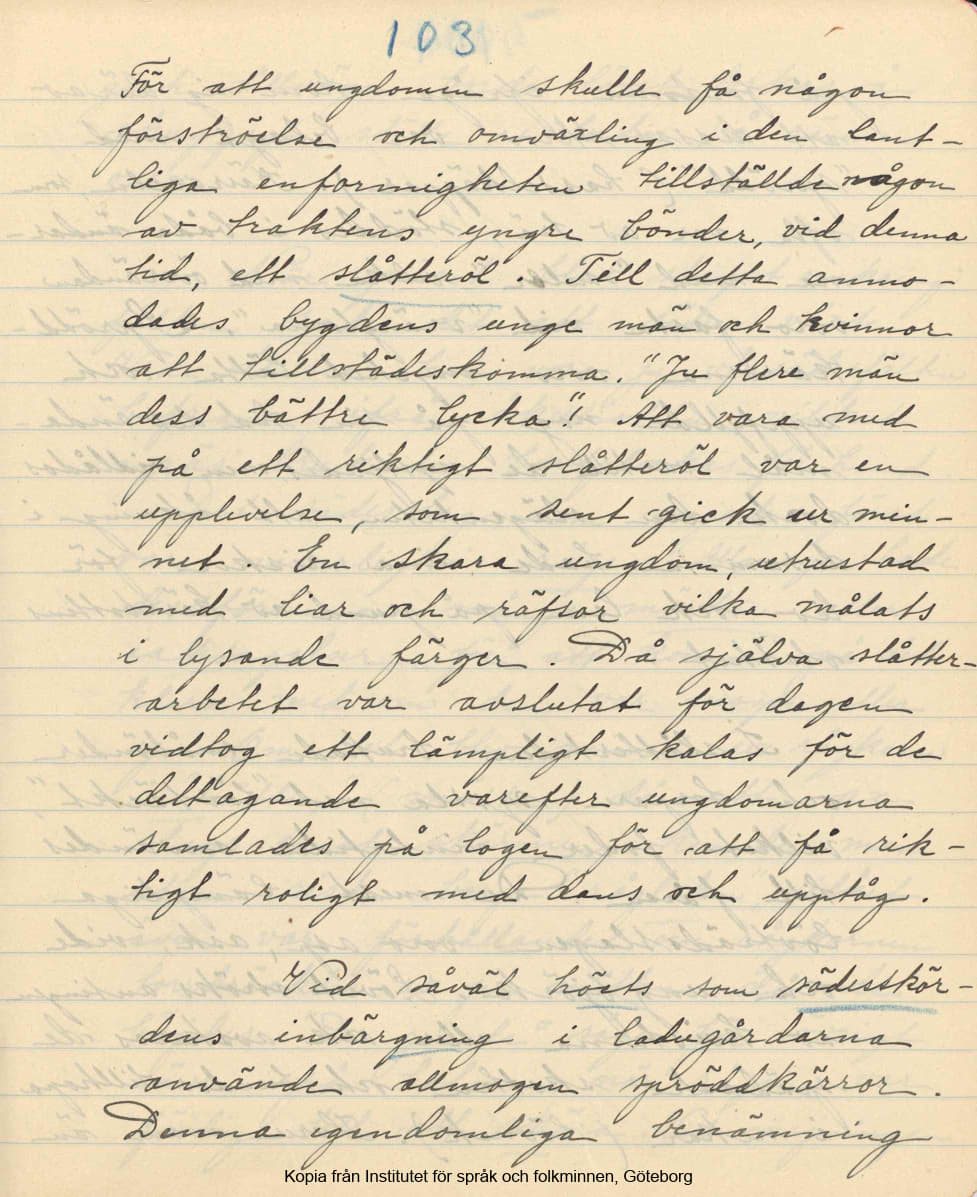 103
För att ungdomen skulle få någon
förströelse och omväxling i den lant-
liga enformigheten tillställde någon
av traktens yngre bönder, vid denna
tid, ett slåtteröl. Till detta anmo-
dades bygdens unge män och kvinnor
att tillstädeskomma. "Ju flere män
dess bättre lycka"! Att vara med
på ett riktigt slåtteröl var en
upplevelse, som sent gick ur min-
net. En skara ungdom, utrustad
med liar och räfsor vilka målats
i lysande färger. Då själva slåtter-
arbetet var avslutat för dagen
vidtog ett lämpligt kalas för de
deltagande varefter ungdomarna
samlades på logen för att få rik-
tigt roligt med dans och upptåg.
Vid såväl hösts som sädesskör-
dens inbärgning i ladugårdarna
använde allmogen spröddkärror.
Denna egendomliga benämning
Kopia från Institutet för språk och folkminnen, Göteborg